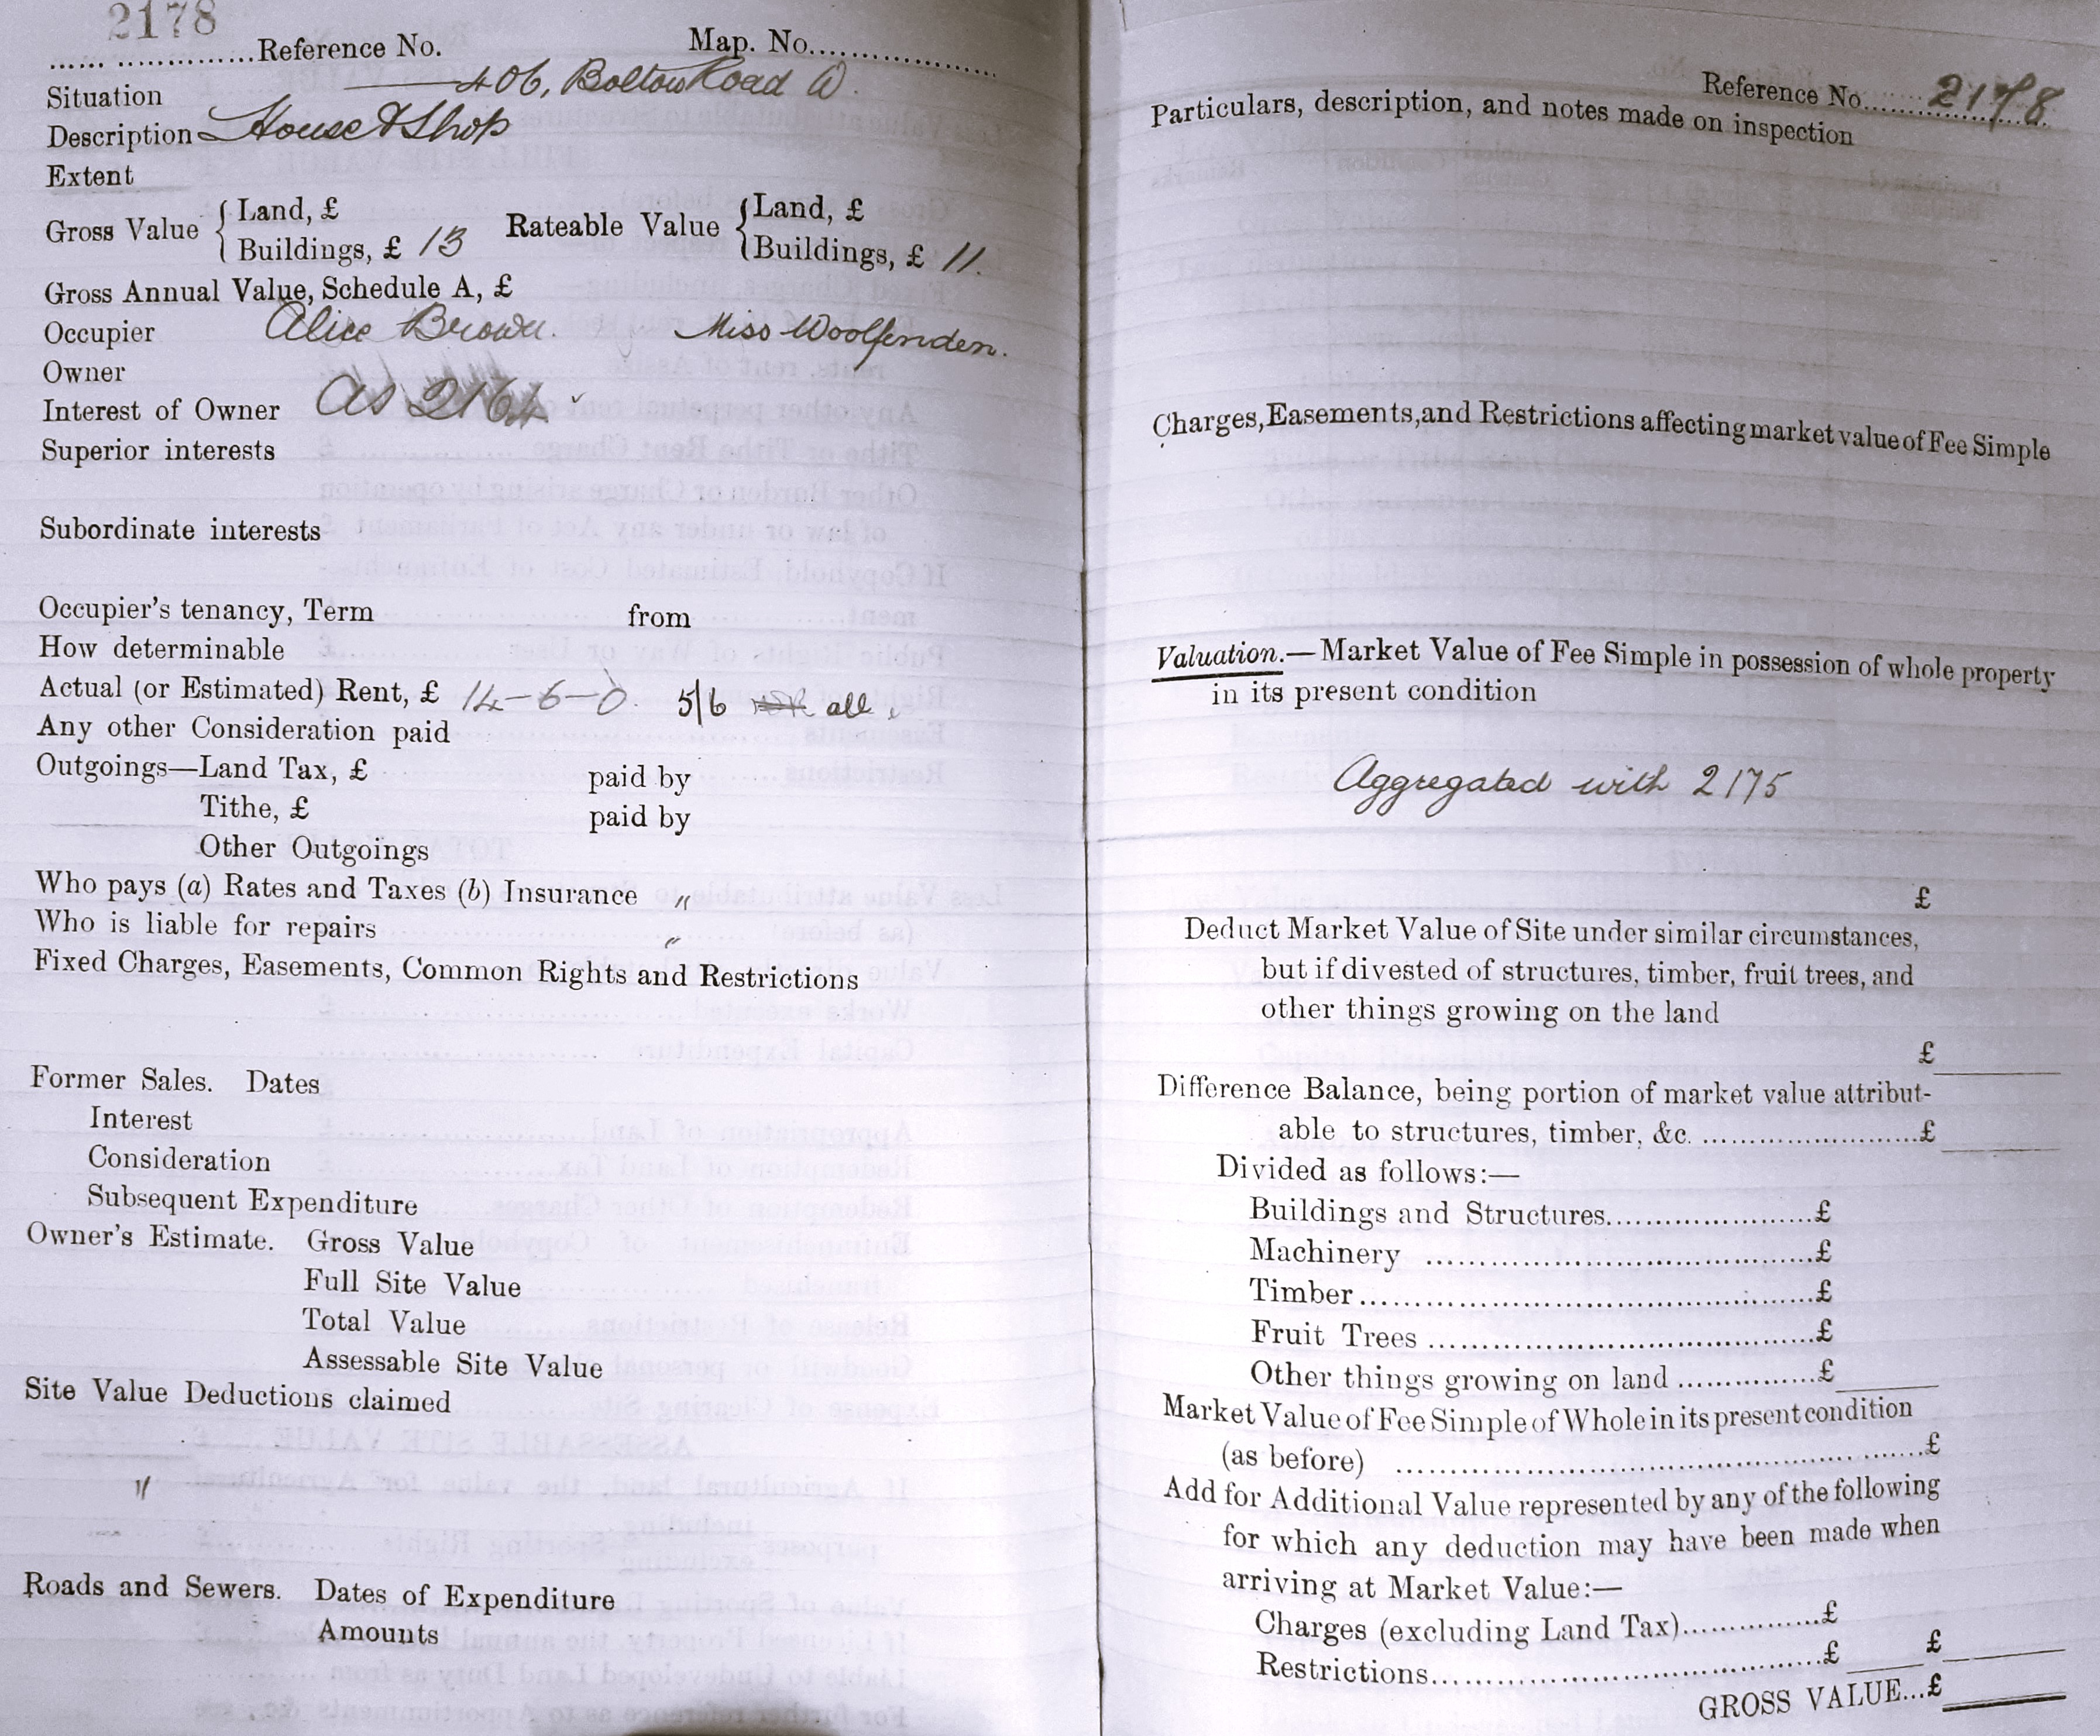 2178
...... ...............Reference No. Map. No.....................
Situation 406, Bolton Road W.
Description House & Shop
Extent
Gross Value { Land, £ Rateable Value { Land, £
Buildings, £ 13 Buildings, £ 11.
Gross Annual Value, Schedule A, £
Occupier Alice Brown. Miss Woolfenden.
Owner
Interest of Owner As 2164
Superior interests
Subordinate interests
Occupier's tenancy, Term from
How determinable
Actual (or Estimated) Rent, £ 14-6-0. 5/6 all
Any other Consideration paid
Outgoings—Land Tax, £ paid by
Tithe, £ paid by
Other Outgoings
Who pays (a) Rates and Taxes (b) Insurance "
Who is liable for repairs "
Fixed Charges, Easements, Common Rights and Restrictions
Former Sales. Dates
Interest
Consideration
Subsequent Expenditure
Owner's Estimate. Gross Value
Full Site Value
Total Value
Assessable Site Value
Site Value Deductions claimed
"
Roads and Sewers. Dates of Expenditure
Amounts
Reference No. 2178
Particulars, description, and notes made on inspection
Charges, Easements, and Restrictions affecting market value of Fee Simple
Valuation.—Market Value of Fee Simple in possession of whole property
in its present condition
Aggregated with 2175
£
Deduct Market Value of Site under similar circumstances,
but if divested of structures, timber, fruit trees, and
other things growing on the land
£
Difference Balance, being portion of market value attribut-
able to structures, timber, &c. ........................£
Divided as follows:—
Buildings and Structures.....................£
Machinery .......................................£
Timber..............................................£
Fruit Trees .......................................£
Other things growing on land ...............£
Market Value of Fee Simple of Whole in its present condition
(as before) .....................................................£
Add for Additional Value represented by any of the following
for which any deduction may have been made when
arriving at Market Value:—
Charges (excluding Land Tax)..............£
Restrictions.......................................£ £
GROSS VALUE...£